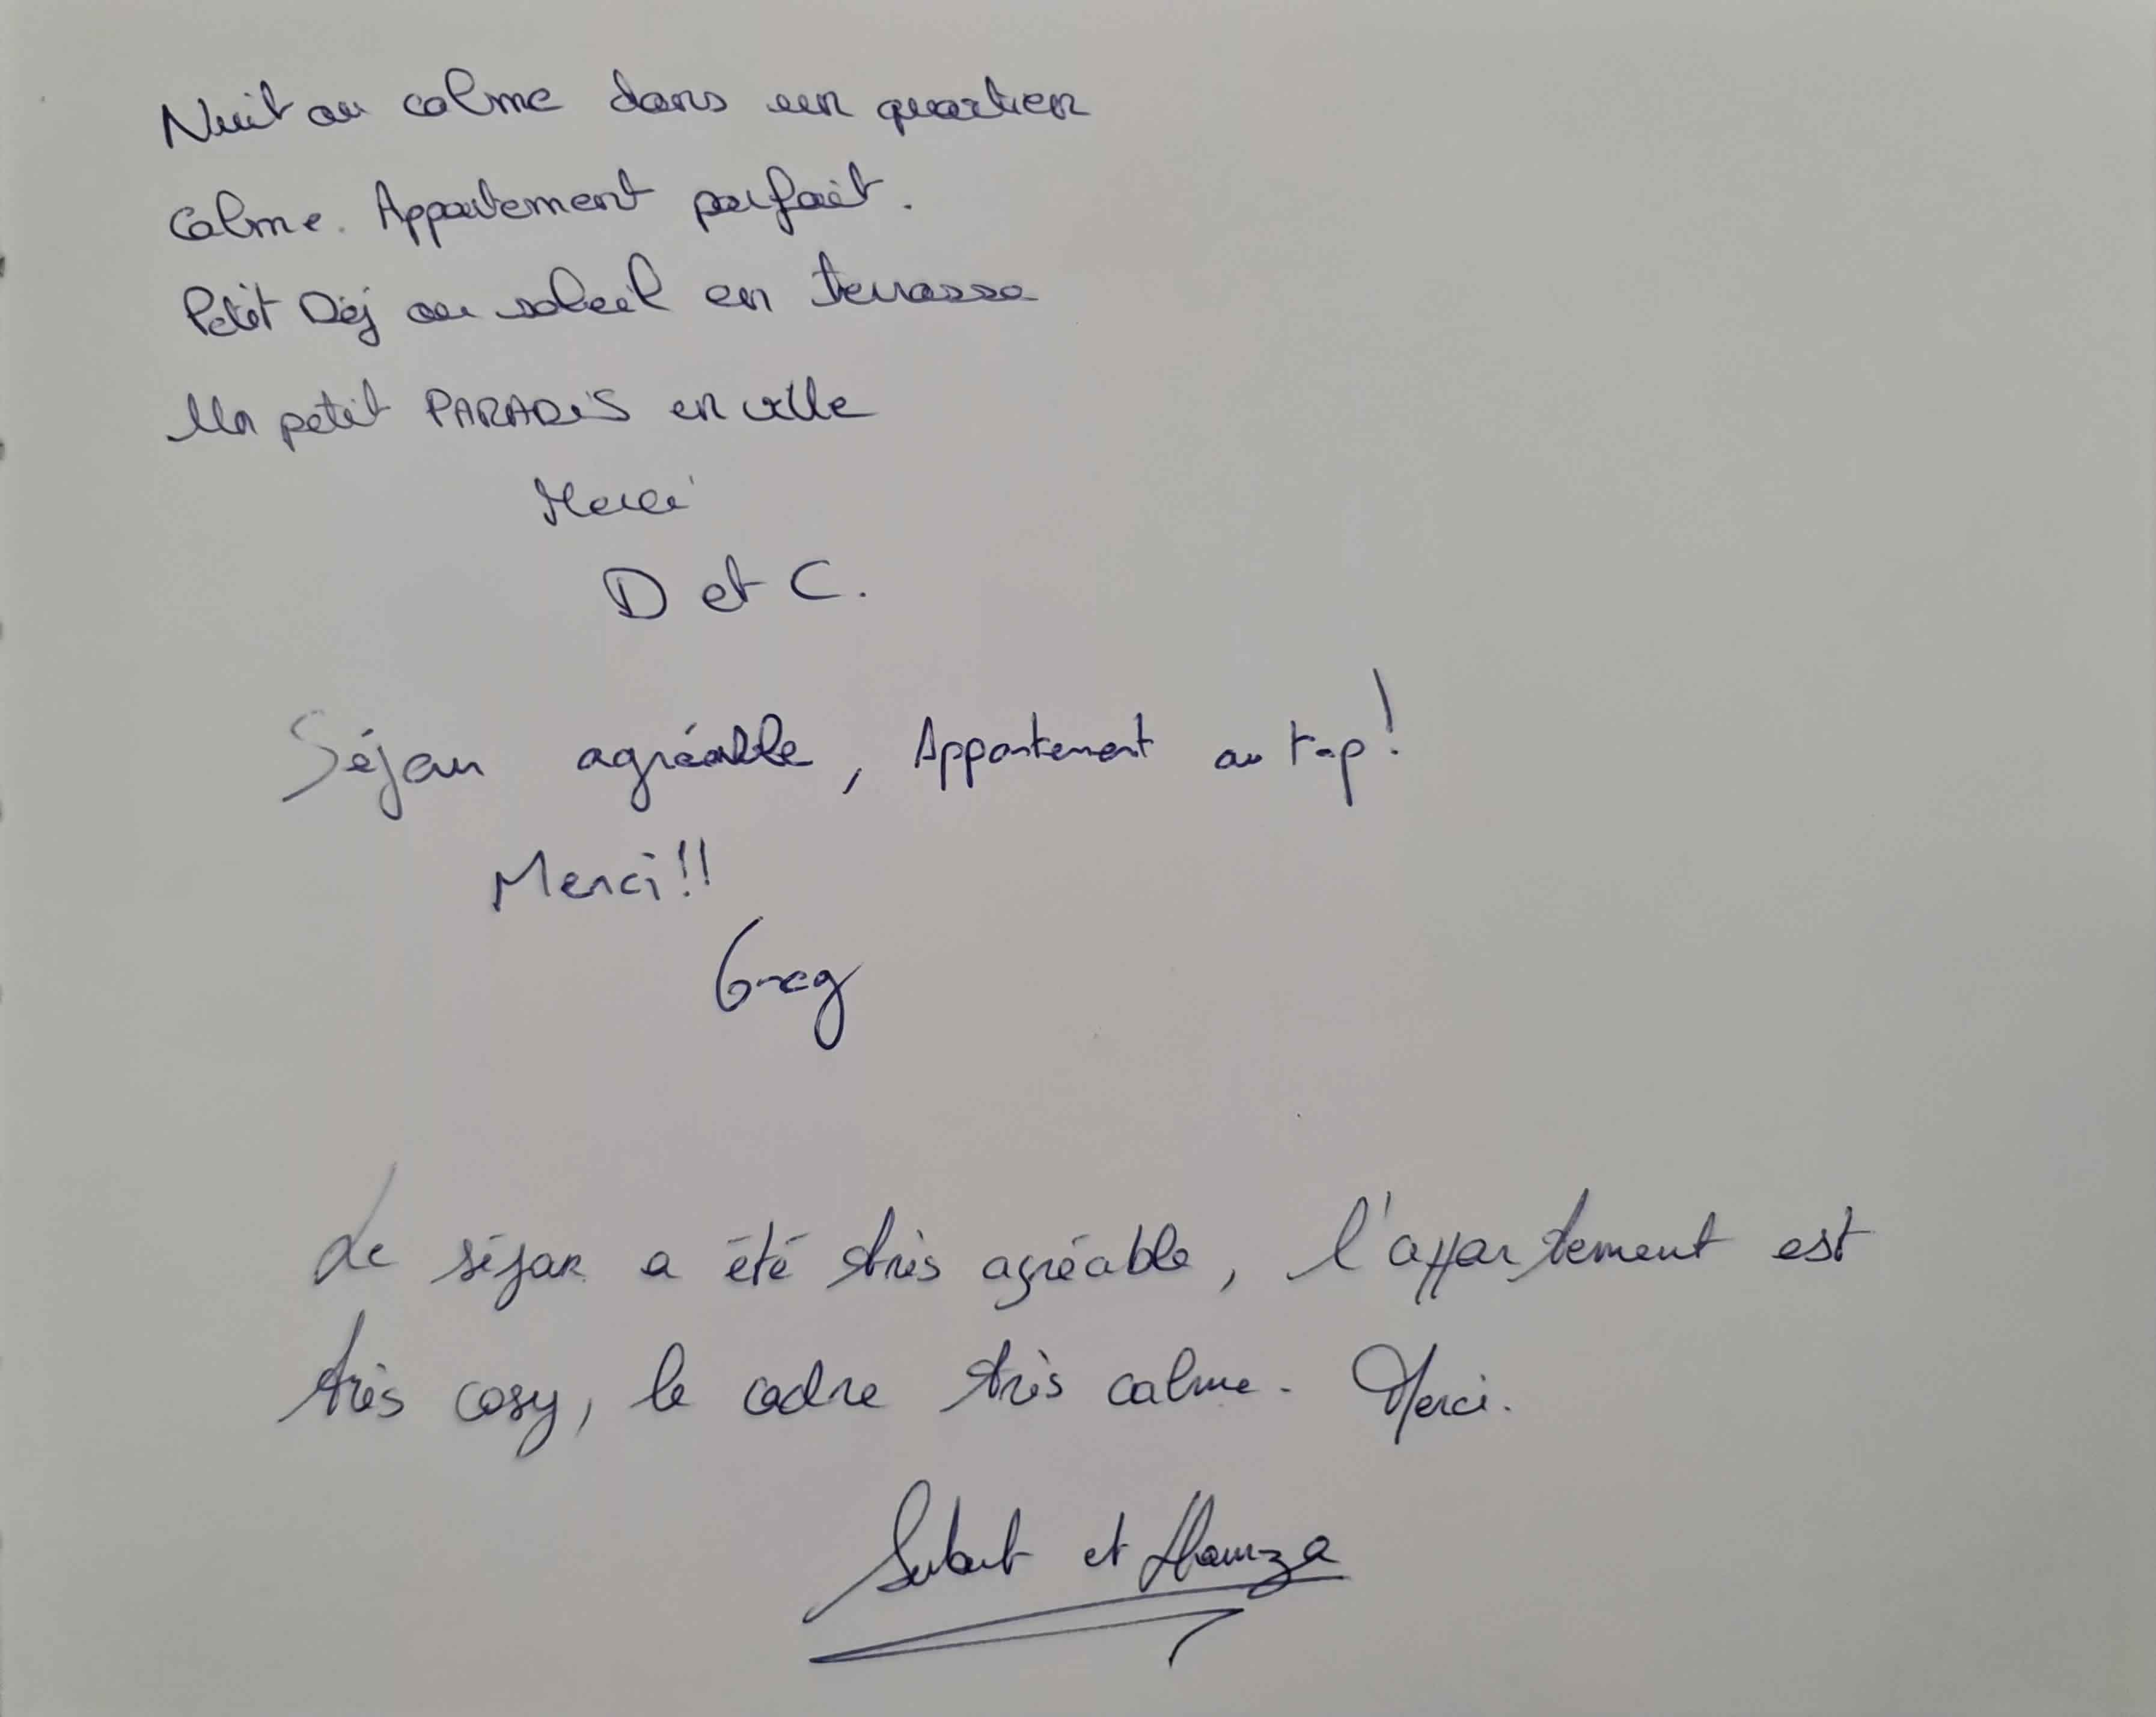 Nuit au calme dans un quartier
Calme. Appartement parfait.
Petit Déj au soleil en terrasse
Un petit PARADIS en ville
Merci
D et C.
Séjour agréable, Appartement au top!
Merci!!
Greg
Le séjour a été très agréable, l'appartement est
très cosy, le cadre très calme. Merci.
et Hamza